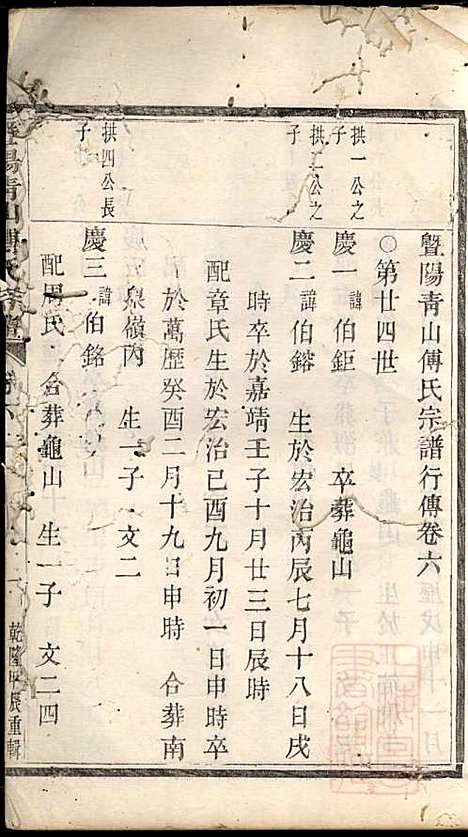 暨陽青山傅氏宗譜行傳卷六
〇第廿四世
拱一公之子
慶一 諱伯鉅 卒葬龜山
拱二公之子
慶二 諱伯鎔 生於宏治丙辰七月十八日戌
時卒於嘉靖壬子十月廿三日辰時
配章氏生於宏治己酉九月初一日申時卒
於萬歷癸酉二月十九日申時 合葬南
泉嶺內 生一子·文二
拱四公長子
慶三 諱伯銘
配周氏·合葬龜山 生一子 文二四
暨陽青山傅氏宗譜
乾隆甲辰重輯